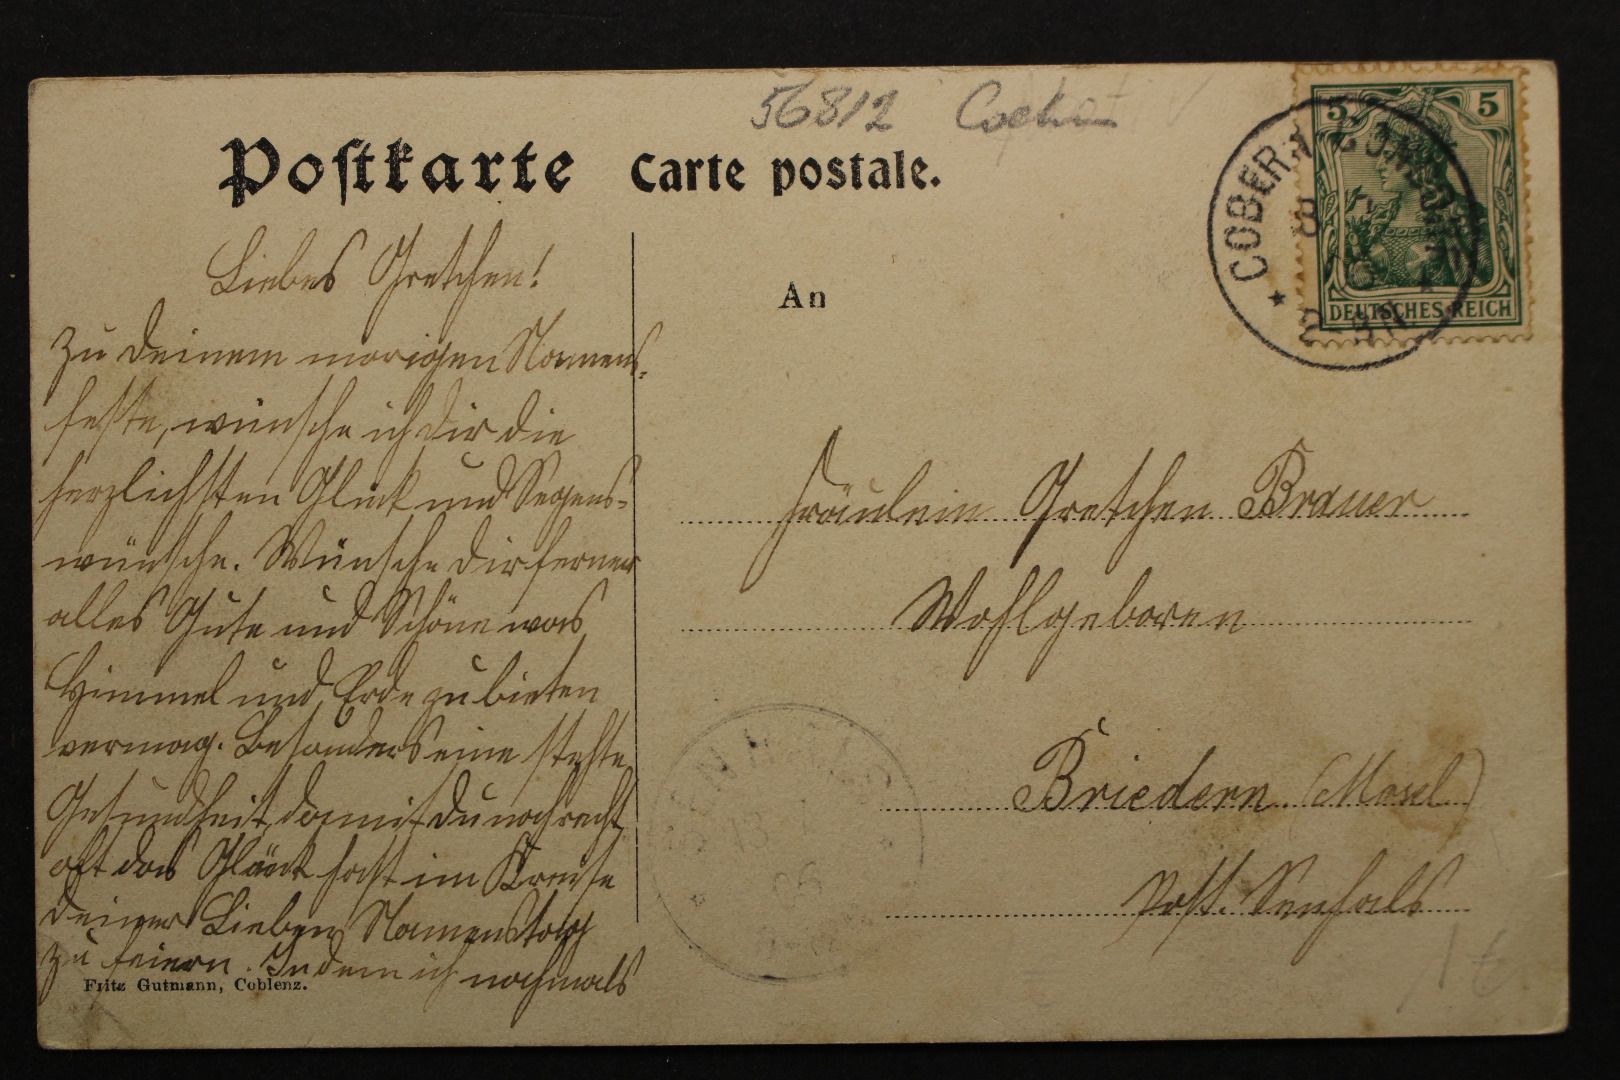 56812 Cochem
Postkarte Carte postale.
5 5
DEUTSCHES REICH
COBERN
An
Liebes Gretchen!
Zu Deinem morigen Namens-
feste, wünsche ich Dir die
herzlichsten Glück und Segens-
wünsche. Wünsche Dir ferner
alles Gute und Schöne was
Himmel und Erde zu bieten
vermag. Besonders eine stehte
Gesundheit, damit Du noch recht
oft das Glück hast im Kreise
Deiner Lieben Namenstag
zu feiern. Indem ich nochmals
Fritz Gutmann, Coblenz.
Fräulein Gretchen Brauer
Wohlgeboren
Briedern (Mosel)
Post. Senhals